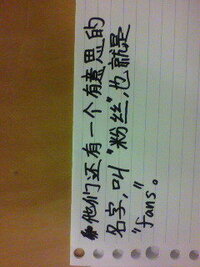 他们还有一个有意思的
名字，叫“粉丝”，也就是
“fans。”